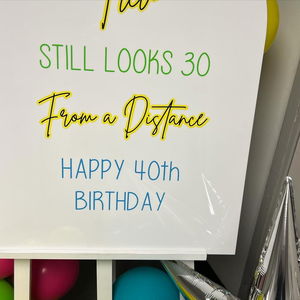 STILL LOOKS 30
From a Distance
HAPPY 40th
BIRTHDAY